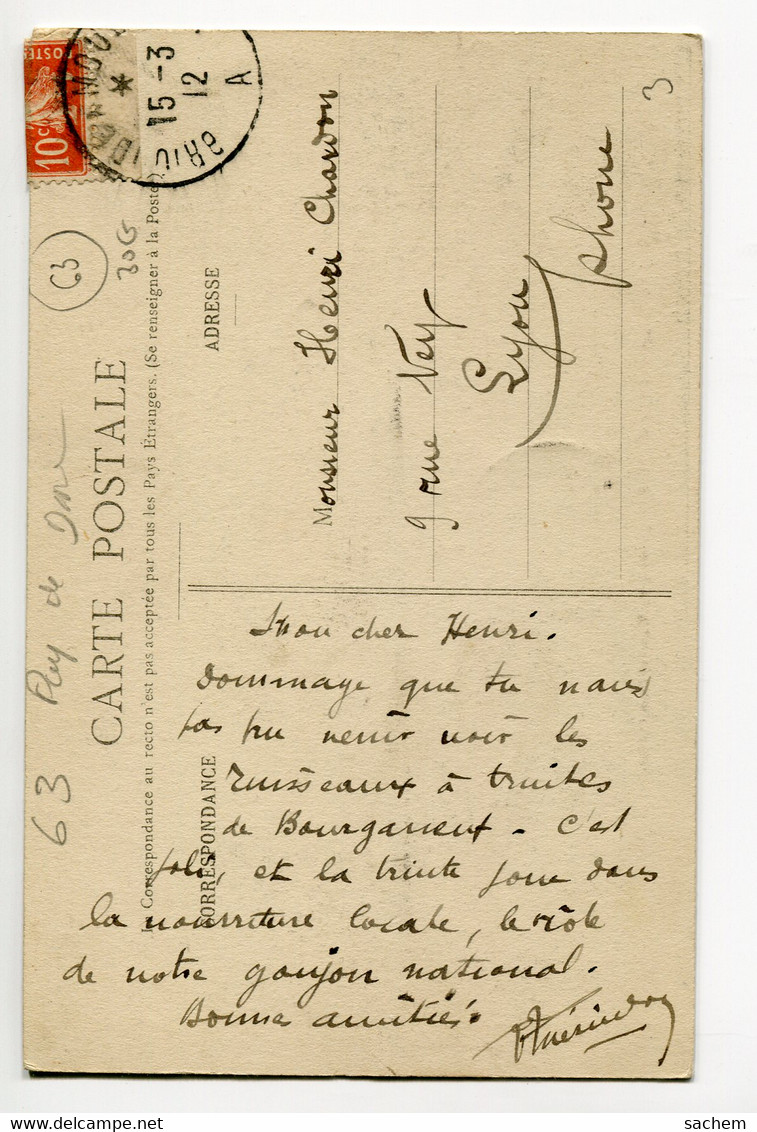 CARTE POSTALE
La Correspondance au recto n'est pas acceptée par tous les Pays Étrangers. (Se renseigner à la Poste.)
CORRESPONDANCE
ADRESSE
POSTES
10c
15-3
12
A
63
30G
3
63 Puy de Dome
Monsieur Henri Chardon
9 rue Vey
Lyon
Rhone
Mon cher Henri.
Dommage que tu n'aies
pas pu venir voir les
ruisseaux à truites
de Bourganeuf - c'est
joli, et la truite joue dans
la nourriture locale, le rôle
de notre goujon national.
Bonnes amitiés.
sachem
delcampe.net